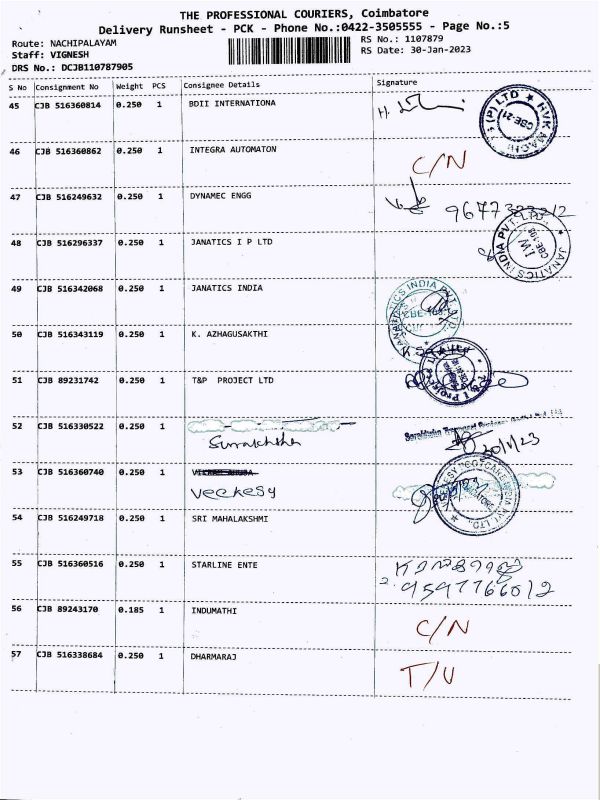 THE PROFESSIONAL COURIERS, Coimbatore
Delivery Runsheet - PCK - Phone No.:0422-3505555 - Page No.:5
Route: NACHIPALAYAM
RS No.: 1107879
Staff: VIGNESH
RS Date: 30-Jan-2023
DRS No.: DCJB110787905
S No Consignment No Weight PCS Consignee Details Signature
45 CJB 516360814 0.250 1 BDII INTERNATIONA H.
(P) LTD ★ HVK
CBE-21
46 CJB 516360862 0.250 1 INTEGRA AUTOMATON C/N
47 CJB 516249632 0.250 1 DYNAMEC ENGG
48 CJB 516296337 0.250 1 JANATICS I P LTD
JANATICS INDIA PVT. LTD.
CBE-108
IW
49 CJB 516342068 0.250 1 JANATICS INDIA
JANATICS INDIA PVT. LTD.
50 CJB 516343119 0.250 1 K. AZHAGUSAKTHI
51 CJB 89231742 0.250 1 T&P PROJECT LTD
52 CJB 516330522 0.250 1
53 CJB 516360740 0.250 1
Veekesy
54 CJB 516249718 0.250 1 SRI MAHALAKSHMI
55 CJB 516360516 0.250 1 STARLINE ENTE
9597766012
56 CJB 89243170 0.185 1 INDUMATHI C/N
57 CJB 516338684 0.250 1 DHARMARAJ T/U